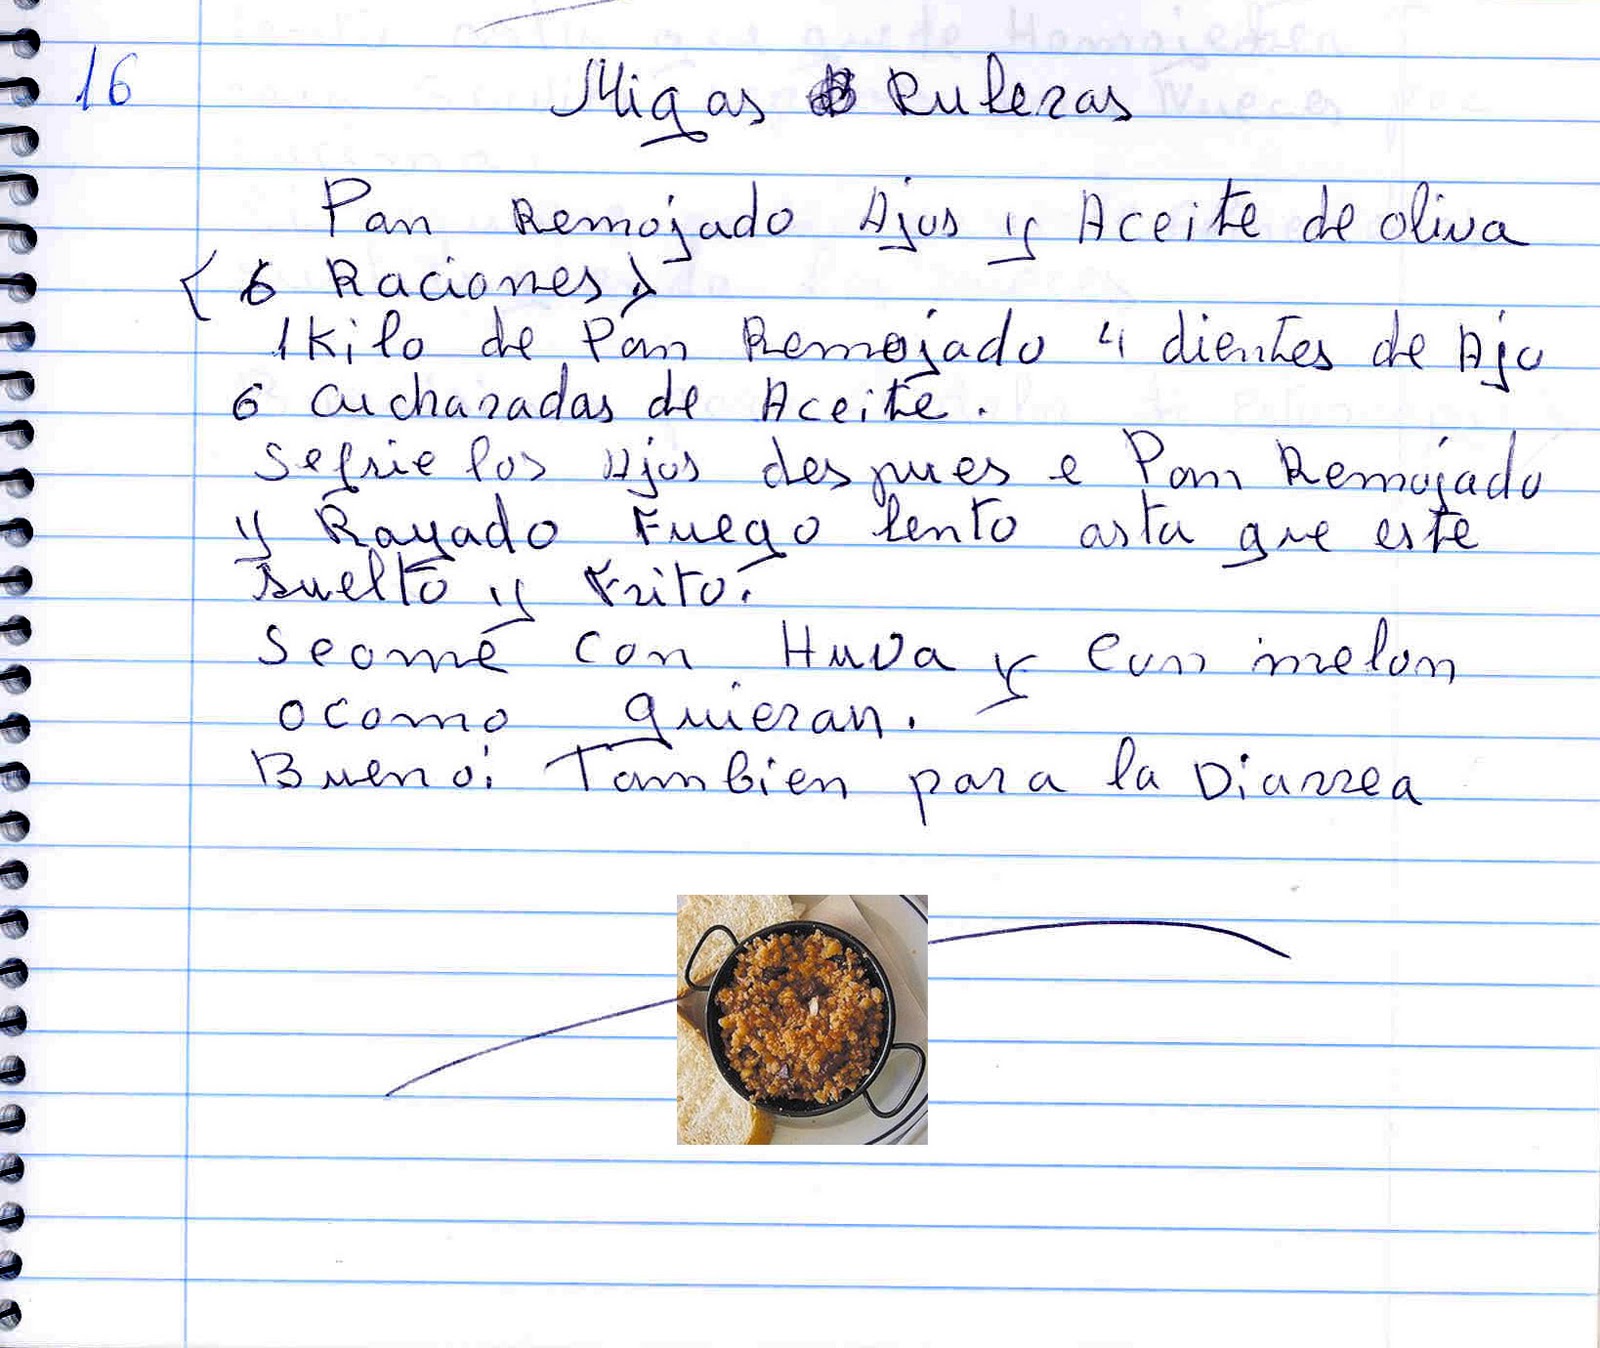 16
Migas Ruleras
Pan Remojado Ajos y Aceite de oliva
( 6 Raciones )
1 Kilo de Pan Remojado 4 dientes de Ajo
6 cucharadas de Aceite.
Sefrie los Ajos despues e Pan Remojado
y Rayado Fuego lento asta que este
suelto y Frito.
Seome con Huva y con melon
ocomo quieran.
Bueno: Tambien para la Diarrea